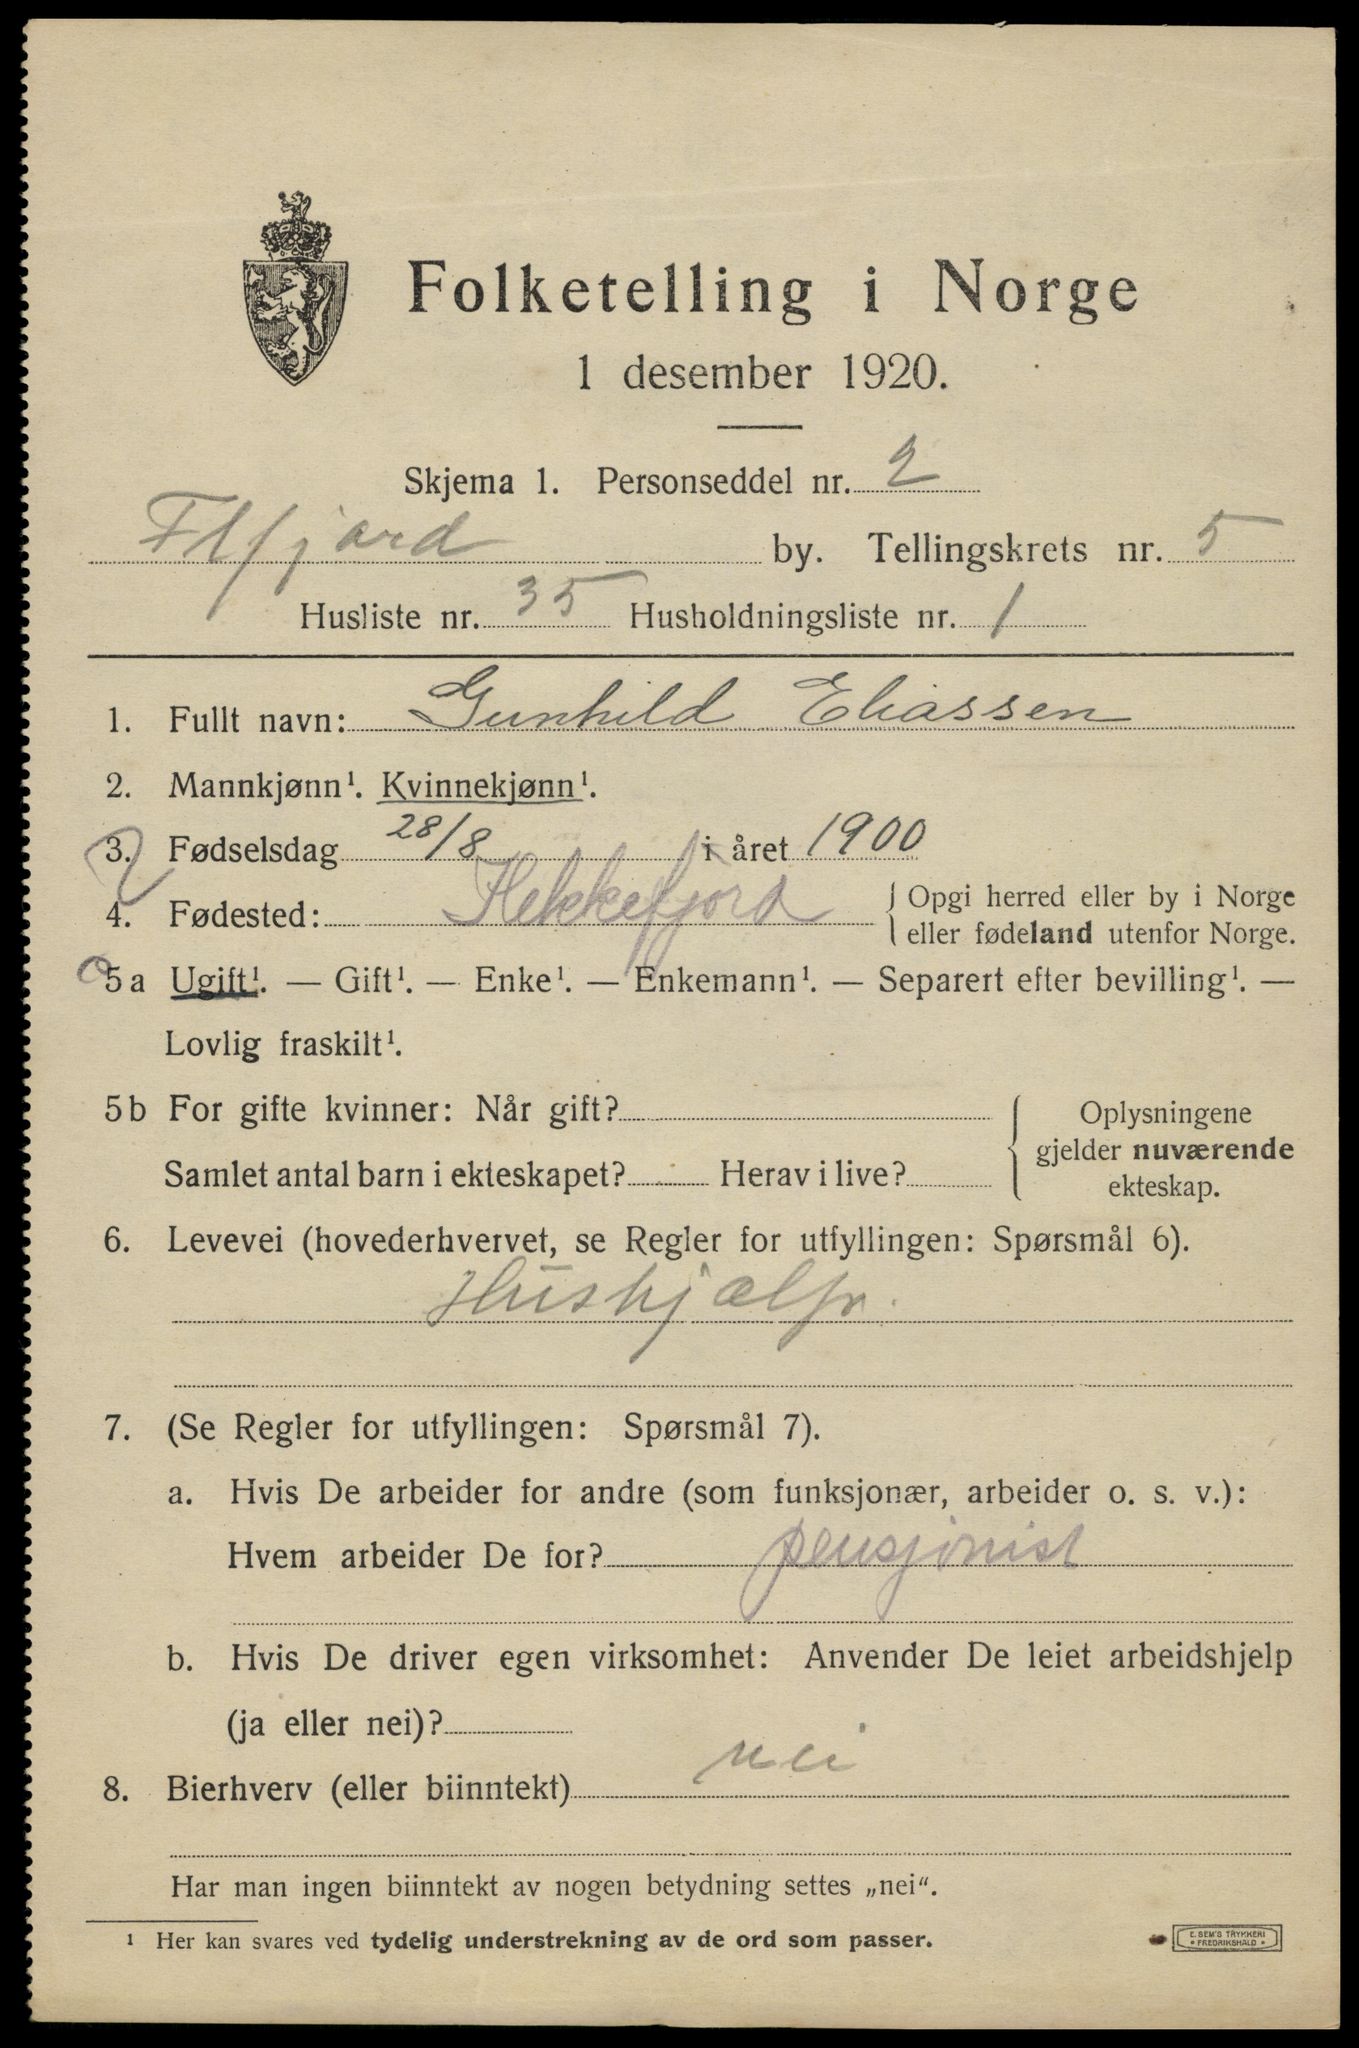 Folketelling i Norge
1 desember 1920.
Skjema 1. Personseddel nr. 2
Flfjord by. Tellingskrets nr. 5
Husliste nr. 35 Husholdningsliste nr. 1
1. Fullt navn: Gunhild Eliassen
2. Mannkjønn¹. Kvinnekjønn¹.
3. Fødselsdag 28/8 i året 1900
4. Fødested: Hekkefjord { Opgi herred eller by i Norge
eller fødeland utenfor Norge.
5a Ugift¹. — Gift¹. — Enke¹. — Enkemann¹. — Separert efter bevilling¹. —
Lovlig fraskilt¹.
5b For gifte kvinner: Når gift?
Samlet antal barn i ekteskapet? Herav i live?
{ Oplysningene
gjelder nuværende
ekteskap.
6. Levevei (hovederhvervet, se Regler for utfyllingen: Spørsmål 6).
Hushjælp.
7. (Se Regler for utfyllingen: Spørsmål 7).
a. Hvis De arbeider for andre (som funksjonær, arbeider o. s. v.):
Hvem arbeider De for? pensjonist
b. Hvis De driver egen virksomhet: Anvender De leiet arbeidshjelp
(ja eller nei)?
8. Bierhverv (eller biinntekt) nei
Har man ingen biinntekt av nogen betydning settes „nei“.
¹ Her kan svares ved tydelig understrekning av de ord som passer.
E. SEM'S TRYKKERI
• FREDRIKSHALD •